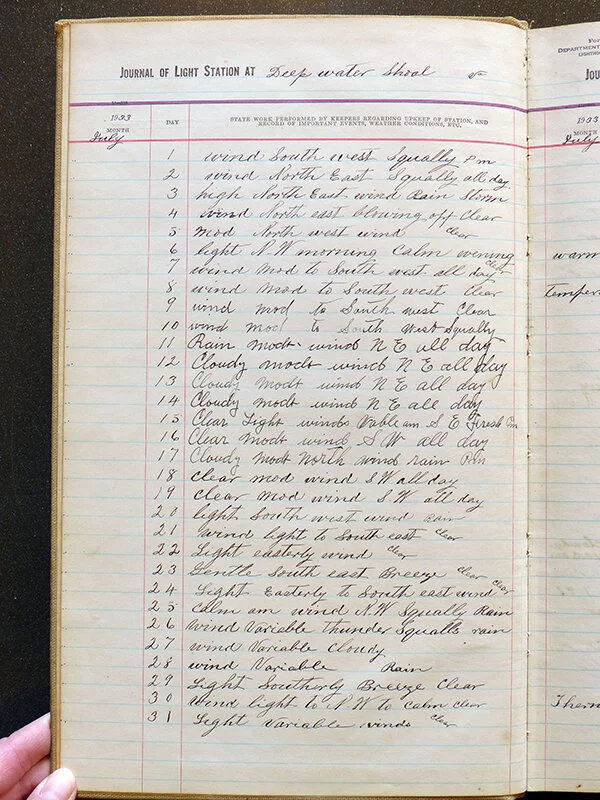 JOURNAL OF LIGHT STATION AT Deep water Shoal Va
1933
MONTH
July
DAY
STATE WORK PERFORMED BY KEEPERS REGARDING UPKEEP OF STATION, AND
RECORD OF IMPORTANT EVENTS, WEATHER CONDITIONS, ETC.
1 wind South west Squally Pm
2 wind North East Squally all day
3 high North East wind Rain Storm
4 wind North east blowing off Clear
5 mod North west wind clear
6 light N.W morning Calm evening
7 wind mod to South west all day clear
8 wind mod to South west Clear
9 wind mod to South west Clear
10 wind mod to South West Squally
11 Rain modt wind N E all day
12 Cloudy modt wind N E all day
13 Cloudy modt wind N E all day
14 Cloudy modt wind N E all day
15 Clear Light winds Vable am S E Fresh Pm
16 Clear modt wind S W all day
17 Cloudy modt North wind rain Pm
18 clear mod wind S W all day
19 clear mod wind S. W all day
20 light South west wind Rain
21 wind light to South east clear
22 Light easterly wind clear
23 Gentle South east Breeze clear
24 Light Easterly to South east wind clear
25 calm am wind N.W Squally Rain
26 wind Variable thunder Squalls rain
27 wind Variable Cloudy
28 wind Variable Rain
29 Light Southerly Breeze Clear
30 Wind light to N W to calm clear
31 Light variable winds clear
DEPARTMENT
1933
MONTH
July
warm